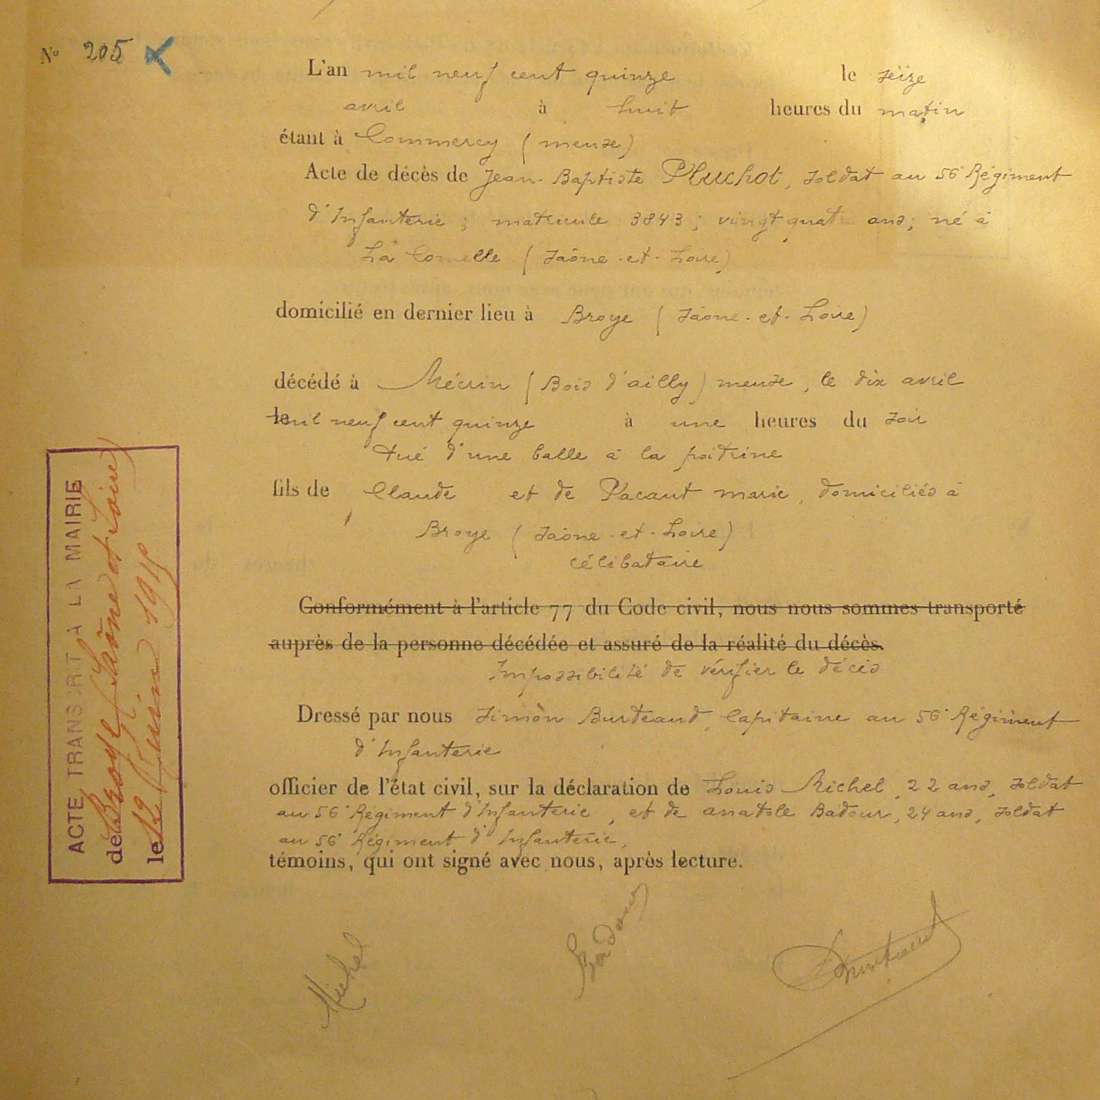 N° 205
L'an mil neuf cent quinze le seize
avril à huit heures du matin
étant à Commercy (meuse)
Acte de décès de Jean-Baptiste Pluchot, soldat au 56e Régiment
d'Infanterie ; matricule 3843 ; vingt quatre ans ; né à
La Comelle (Saône-et-Loire)
domicilié en dernier lieu à Broye (Saône-et-Loire)
décédé à Mécrin (Bois d'ailly) meuse, le dix avril
le mil neuf cent quinze à une heures du soir
tué d'une balle à la poitrine
fils de Claude et de Pacaut marie, domiciliés à
Broye (Saône-et-Loire)
célibataire
Conformément à l'article 77 du Code civil, nous nous sommes transporté
auprès de la personne décédée et assuré de la réalité du décès.
Impossibilité de vérifier le décès
Dressé par nous Simon Burteaud, Capitaine au 56e Régiment
d'Infanterie
officier de l'état civil, sur la déclaration de Louis Michel, 22 ans, soldat
au 56e Régiment d'Infanterie, et de anatole Badour, 24 ans, soldat
au 56e Régiment d'Infanterie,
témoins, qui ont signé avec nous, après lecture.
Michel Badour
ACTE TRANSCRIT A LA MAIRIE
de Broye (Saône et Loire)
le 12 1915